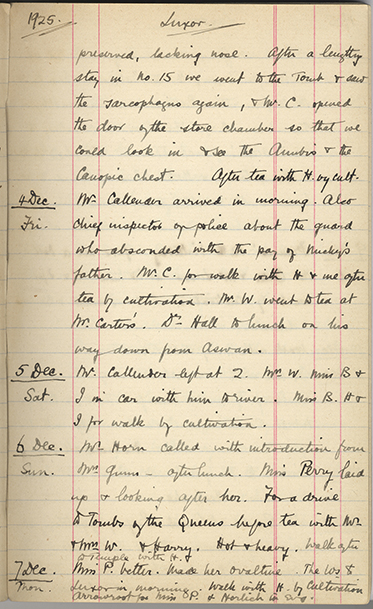 1925. Luxor.
preserved, lacking nose. After a lengthy
stay in No. 15 we went to the Tomb & saw
the sarcophagus again, & Mr. C. opened
the door of the store chamber so that we
could look in & see the Anubis & the
Canopic chest. After tea with H. by cult.
4 Dec. Mr. Callender arrived in morning. Also
Fri. Chief inspector of police about the guard
who absconded with the pay of Nicky's
father. Mr. C. for walk with H & me after
tea by cultivation. Mr. W. went to tea at
Mr. Carter's. Dr. Hall to lunch on his
way down from Aswan.
5 Dec. Mr. Callender left at 2. Mrs W. Miss B &
Sat. I in car with him to river. Miss B. H &
I for walk by cultivation.
6 Dec. Mr Horn called with introduction from
Sun. Mr Gunn - after lunch. Miss Perry laid
up & looking after her. For a drive
to Tombs of the Queens before tea with Mr.
& Mrs W. & Harry. Hot & heavy. Walk after
to Temple with H.
7 Dec. Miss P. better. Made her ovaltine. The Ws &
Mon. Luxor in morning. Walk with H. by Cultivation
arrowroot for Miss P. & Horlick's